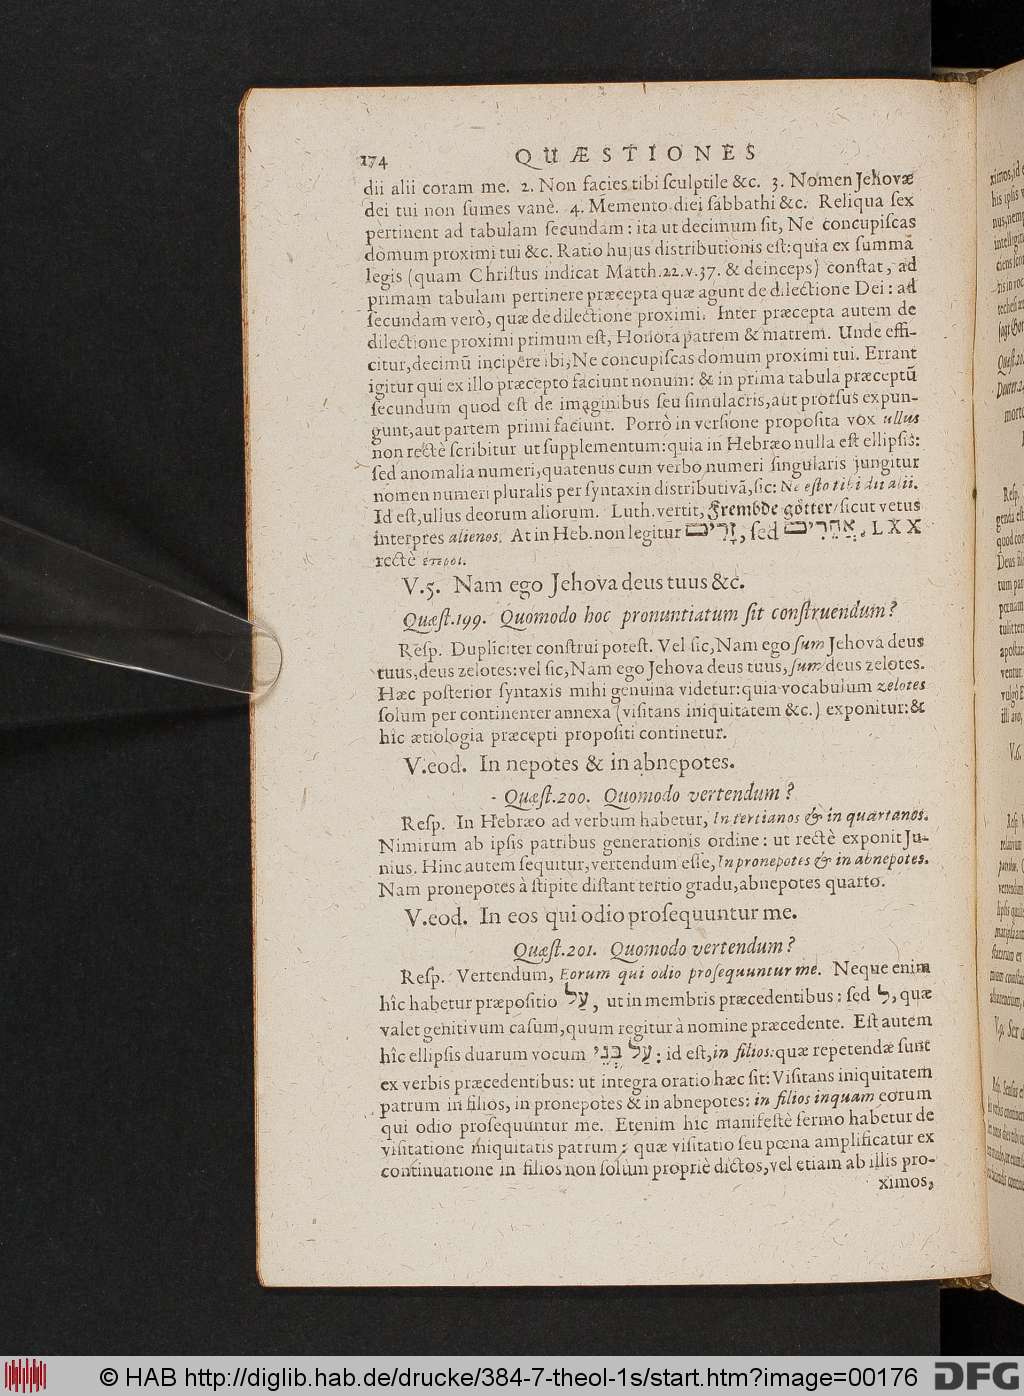 174 QUÆSTIONES
dii alii coram me. 2. Non facies tibi ſculptile &c. 3. Nomen Jehovæ
dei tui non ſumes vanè. 4. Memento diei ſabbathi &c. Reliqua ſex
pertinent ad tabulam ſecundam: ita ut decimum ſit, Ne concupiſcas
domum proximi tui &c. Ratio hujus distributionis eſt: quia ex ſummâ
legis (quam Chriſtus indicat Matth. 22. v. 37. & deinceps) conſtat, ad
primam tabulam pertinere præcepta quæ agunt de dilectione Dei: ad
ſecundam verò, quæ de dilectione proximi. Inter præcepta autem de
dilectione proximi primum eſt, Honora patrem & matrem. Unde effi-
citur, decimũ incipere ibi, Ne concupiſcas domum proximi tui. Errant
igitur qui ex illo præcepto faciunt nonum: & in prima tabula præceptũ
ſecundum quod eſt de imaginibus ſeu ſimulacris, aut protſus expun-
gunt, aut partem primi faciunt. Porrò in verſione propoſita vox ullus
non rectè ſcribitur ut ſupplementum: quia in Hebræo nulla eſt ellipſis:
ſed anomalia numeri, quatenus cum verbo numeri ſingularis jungitur
nomen numeri pluralis per ſyntaxin distributivã, ſic: Ne eſto tibi dii alii.
Id eſt, ullus deorum aliorum. Luth. vertit, Frembde götter/ ſicut vetus
interpres alienos. At in Heb. non legitur זָרִים, ſed אֲחֵרִים. LXX
rectè ἕτεροι.
V. 5. Nam ego Jehova deus tuus &c.
Quæſt. 199. Quomodo hoc pronuntiatum ſit conſtruendum?
Reſp. Dupliciter conſtrui poteſt. Vel ſic, Nam ego ſum Jehova deus
tuus, deus zelotes: vel ſic, Nam ego Jehova deus tuus, ſum deus zelotes.
Hæc poſterior ſyntaxis mihi genuina videtur: quia vocabulum zelotes
ſolum per continenter annexa (viſitans iniquitatem &c.) exponitur: &
hîc ætiologia præcepti propoſiti continetur.
V. eod. In nepotes & in abnepotes.
Quæſt. 200. Quomodo vertendum?
Reſp. In Hebræo ad verbum habetur, In tertianos & in quartanos.
Nimirum ab ipſis patribus generationis ordine: ut rectè exponit Ju-
nius. Hinc autem ſequitur, vertendum eſſe, In pronepotes & in abnepotes.
Nam pronepotes à ſtipite diſtant tertio gradu, abnepotes quarto.
V. eod. In eos qui odio proſequuntur me.
Quæſt. 201. Quomodo vertendum?
Reſp. Vertendum, Eorum qui odio proſequuntur me. Neque enim
hîc habetur præpoſitio עַל, ut in membris præcedentibus: ſed ל, quæ
valet genitivum caſum, quum regitur à nomine præcedente. Eſt autem
hîc ellipſis duarum vocum עַל בְּנֵי: id eſt, in filios: quæ repetendæ ſunt
ex verbis præcedentibus: ut integra oratio hæc ſit: Viſitans iniquitatem
patrum in filios, in pronepotes & in abnepotes: in filios inquam eorum
qui odio proſequuntur me. Etenim hîc manifeſtè ſermo habetur de
viſitatione iniquitatis patrum: quæ viſitatio ſeu pœna amplificatur ex
continuatione in filios non ſolùm propriè dictos, vel etiam ab illis pro-
ximos,
© HAB http://diglib.hab.de/drucke/384-7-theol-1s/start.htm?image=00176 DFG